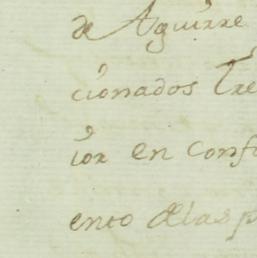 de Aguirre
cionados Tre
ior en conf
ento delas p